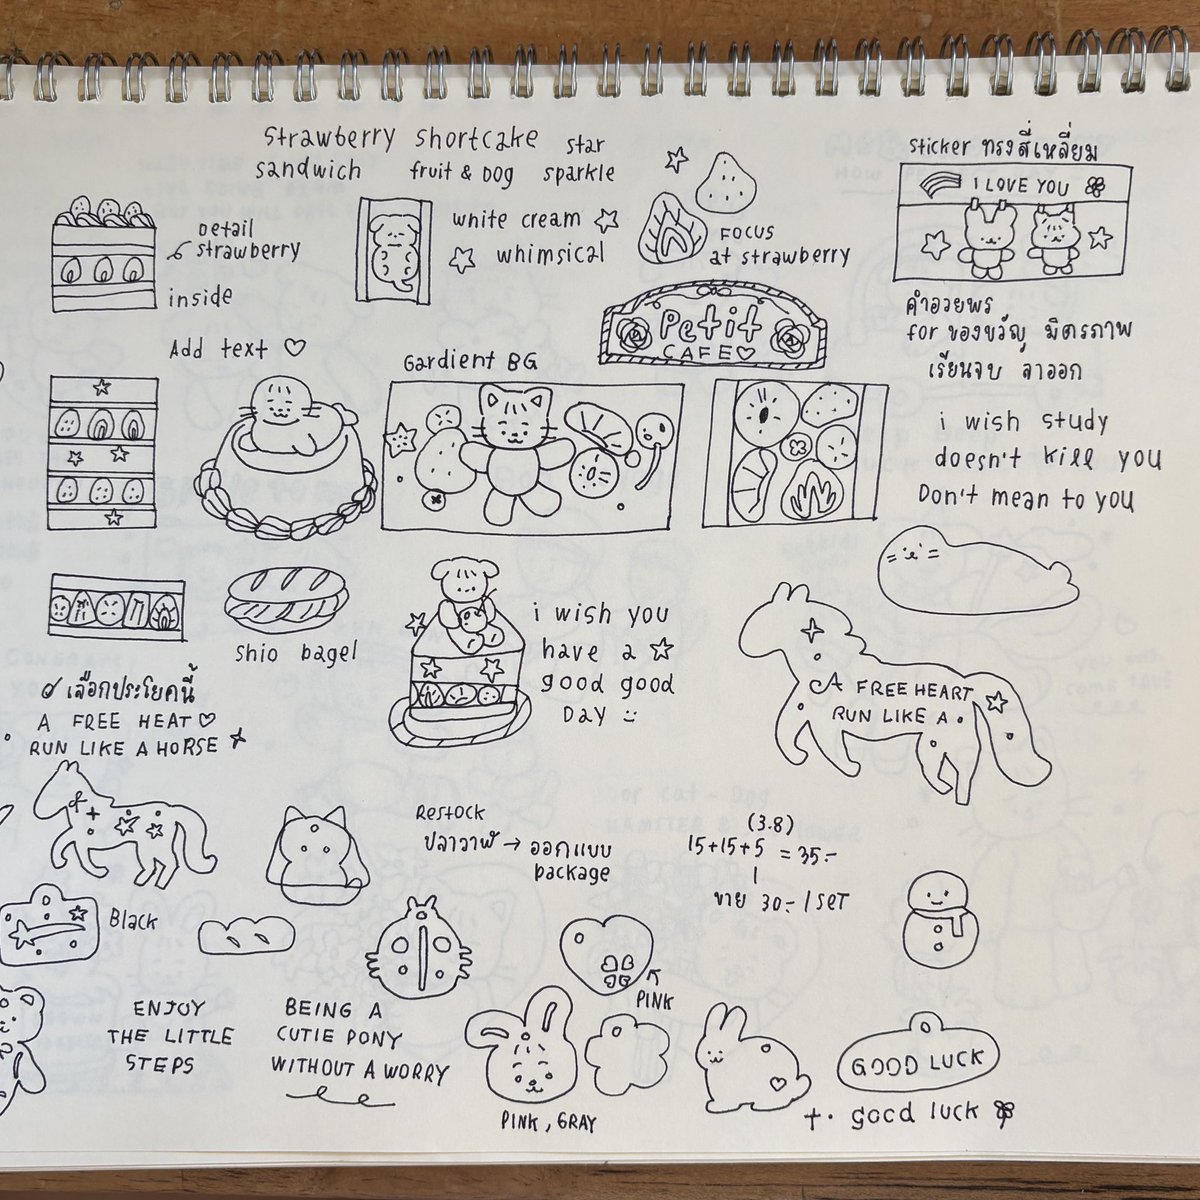 Strawberry shortcake
sandwich fruit & Dog
star
sparkle
Detail
strawberry
inside
white cream
whimsical
FOCUS
at strawberry
sticker ทรงสี่เหลี่ยม
I LOVE YOU
Petit
CAFE
Add text
Gardient BG
คำอวยพร
for ของขวัญ มิตรภาพ
เรียนจบ ลาออก
i wish study
doesn't kill you
Don't mean to you
shio bagel
i wish you
have a
good good
DAY
เลือกประโยคนี้
A FREE HEAT
RUN LIKE A HORSE
A FREE HEART
RUN LIKE A
Restock
ปลาวาฬ → ออกแบบ
package
(3.8)
15+15+5 = 35.-
1
ขาย 30.- / SET
Black
PINK
ENJOY
THE LITTLE
STEPS
BEING A
CUTIE PONY
WITHOUT A WORRY
PINK, GRAY
GOOD LUCK
good luck